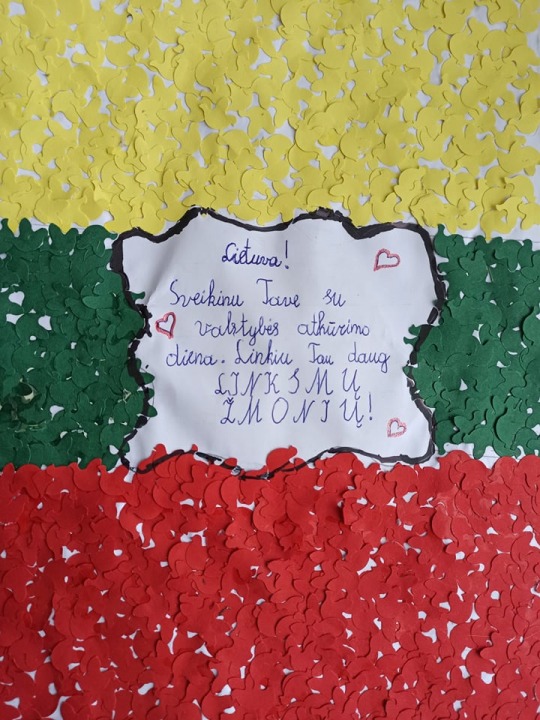 Lietuva!
Sveikinu Tave su
valstybės atkūrimo
diena. Linkiu Tau daug
LINKSMŲ
ŽMONIŲ!